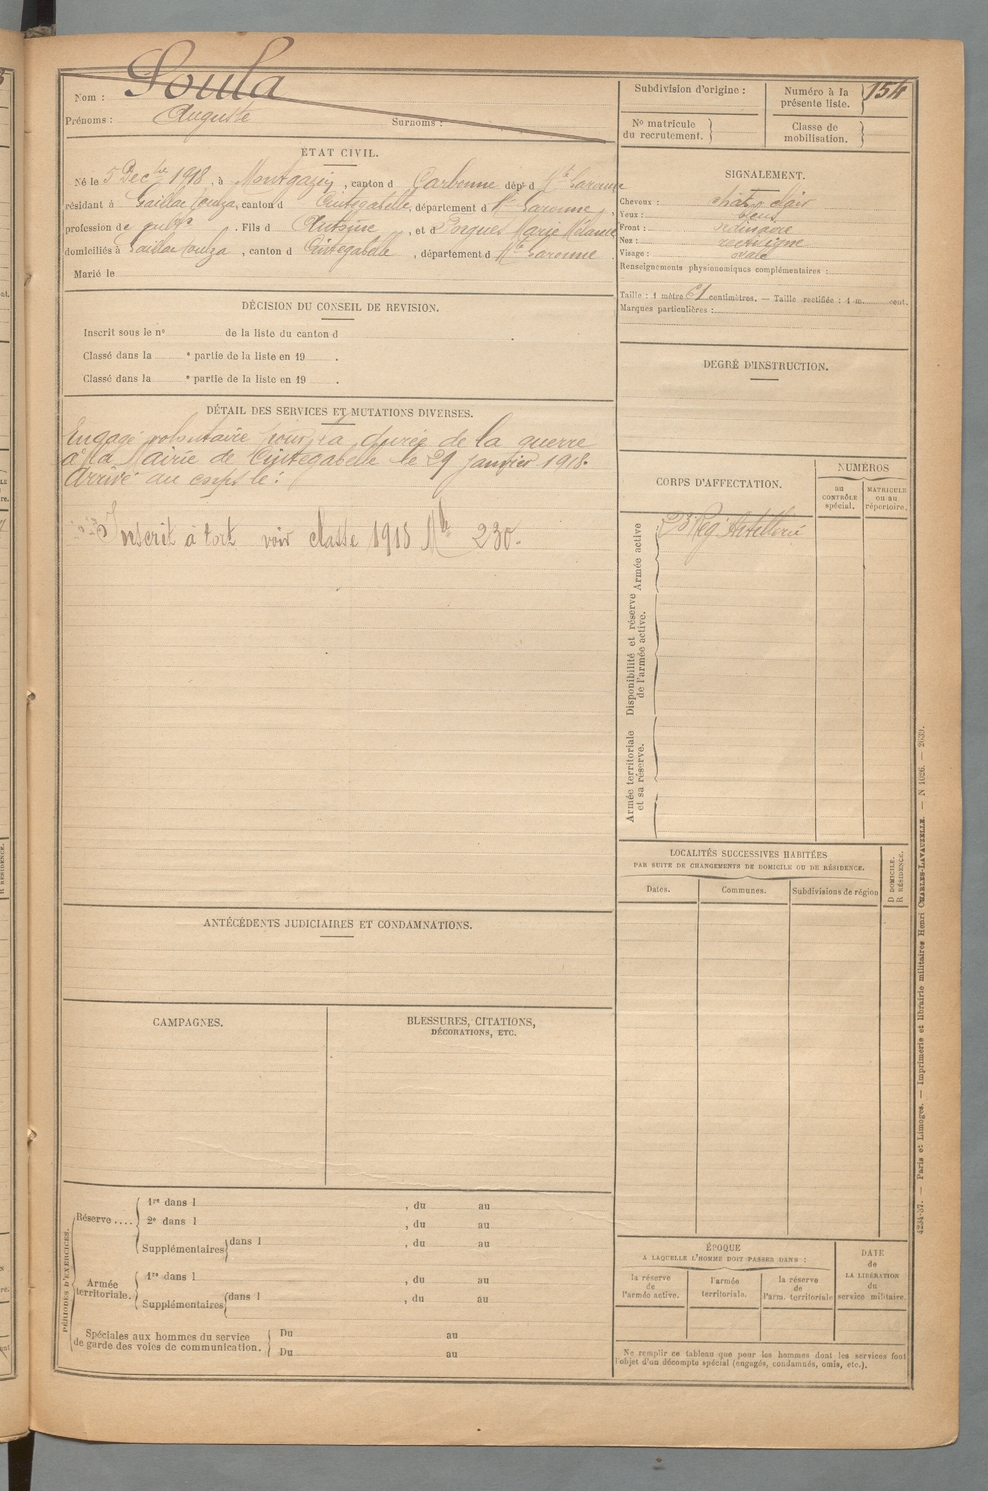 Nom : Soula
Prénoms : Auguste Surnoms :
ETAT CIVIL.
Né le 5 Dec bre 1918, à Montgazin, canton d Carbonne dépt d Hte Garonne
résidant à Gaillac Toulza, canton d Cintegabelle, département d Hte Garonne,
profession de . Fils d Antoine, et d Marie Mélanie
domiciliés à Gaillac Toulza, canton d Cintegabelle, département d Hte Garonne
Marié le
DÉCISION DU CONSEIL DE REVISION.
Inscrit sous le n° de la liste du canton d
Classé dans la e partie de la liste en 19 .
Classé dans la e partie de la liste en 19 .
DÉTAIL DES SERVICES ET MUTATIONS DIVERSES.
Engagé volontaire pour la durée de la guerre
à la Mairie de Cintegabelle le 29 janvier 1918.
Arrivé au corps le :
Inscrit à tort voir classe 1918 Mle 230.
ANTÉCÉDENTS JUDICIAIRES ET CONDAMNATIONS.
CAMPAGNES.
BLESSURES, CITATIONS,
DÉCORATIONS, ETC.
PÉRIODES D'EXERCICES.
Réserve ....
1re dans l , du au
2e dans l , du au
Supplémentaires dans l , du au
Armée
territoriale.
1re dans l , du au
Supplémentaires dans l , du au
Spéciales aux hommes du service
de garde des voies de communication.
Du au
Du au
Subdivision d'origine :
Numéro à la
présente liste.
154
N° matricule
du recrutement.
Classe de
mobilisation.
SIGNALEMENT.
Cheveux : chat clair
Yeux : bleus
Front : ordinaire
Nez : rectiligne
Visage : ovale
Renseignements physionomiques complémentaires :
Taille : 1 mètre 61 centimètres. — Taille rectifiée : 1 m. cent.
Marques particulières :
DEGRÉ D'INSTRUCTION.
CORPS D'AFFECTATION.
NUMÉROS
au
CONTRÔLE
spécial.
MATRICULE
ou au
répertoire.
Armée active
23e Rég Artillerie
Disponibilité et réserve
de l'armée active.
Armée territoriale
et sa réserve.
LOCALITÉS SUCCESSIVES HABITÉES
PAR SUITE DE CHANGEMENTS DE DOMICILE OU DE RÉSIDENCE.
Dates.
Communes.
Subdivisions de région
D DOMICILE.
R RÉSIDENCE.
ÉPOQUE
A LAQUELLE L'HOMME DOIT PASSER DANS :
la réserve
de
l'armée active.
l'armée
territoriale.
la réserve
de
l'arm. territoriale
DATE
de
LA LIBÉRATION
du
service militaire.
Ne remplir ce tableau que pour les hommes dont les services font
l'objet d'un décompte spécial (engagés, condamnés, omis, etc.).
4234-97. — Paris et Limoges. — Imprimerie et librairie militaires Henri CHARLES-LAVAUZELLE. — N 1026. — 2639.